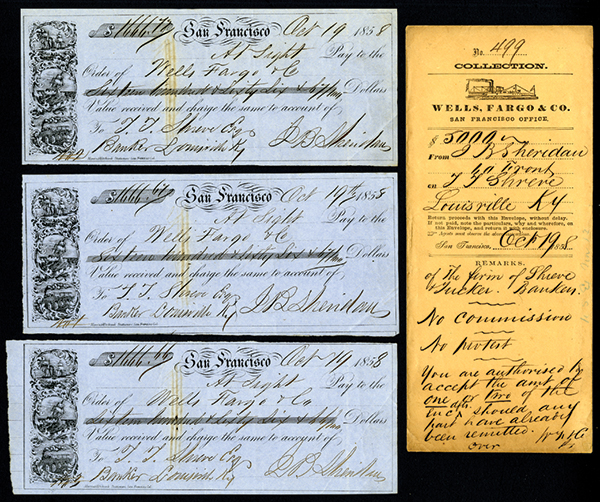 $1666.70 San Francisco Oct 19 1858
At Sight Pay to the
Order of Wells Fargo & Co
Sixteen hundred & sixty six & 67/100 Dollars
Value received and charge the same to account of
To T. T. Shreve Esq J B Sheridan
Banker Louisville Ky
$1666.67 San Francisco Oct 19th 1858
At Sight Pay to the
Order of Wells Fargo & Co
Sixteen hundred & sixty six & 67/100 Dollars
Value received and charge the same to account of
To T. T. Shreve Esq J B Sheridan
Banker Louisville Ky
$1666.66 San Francisco Oct 19 1858
At Sight Pay to the
Order of Wells Fargo & Co
Sixteen hundred & sixty six Dollars
Value received and charge the same to account of
To T. T. Shreve Esq J B Sheridan
Banker Louisville Ky
No. 499
COLLECTION.
WELLS, FARGO & CO.
SAN FRANCISCO OFFICE.
$5000
From J B Sheridan
San Front
on T T Shreve
Louisville Ky
Return proceeds with this Envelope, without delay.
If not paid, note the particulars, why and wherefore, on
this Envelope, and return it with enclosure.
Agents must observe the above
San Francisco, Oct 19 1858
REMARKS.
of The firm of Shreve
& Tucker. Bankers.
No Commission
No protest
You are authorised to
accept the amt of
one or two of the
encd dfts. should any
part have already
been remitted. W F & Co
over